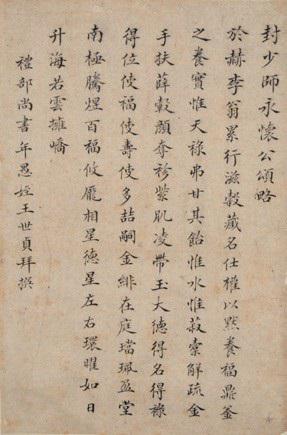 封少師永懷公頌略
於赫李翁累行滋穀藏名仕權以黙養福鼎釜
之養實惟天祿弗甘其飴惟水惟菽橐解疏金
手扶薛轂顏奪袗紫肌凌帶玉大德得名得祿
得位使福使壽使多喆嗣金緋在庭璫珮盈堂
南極騰煋百福攸龐相星德星左右環曜如日
升海若雲擁嶠
禮部尚書年愚姪王世貞拜撰